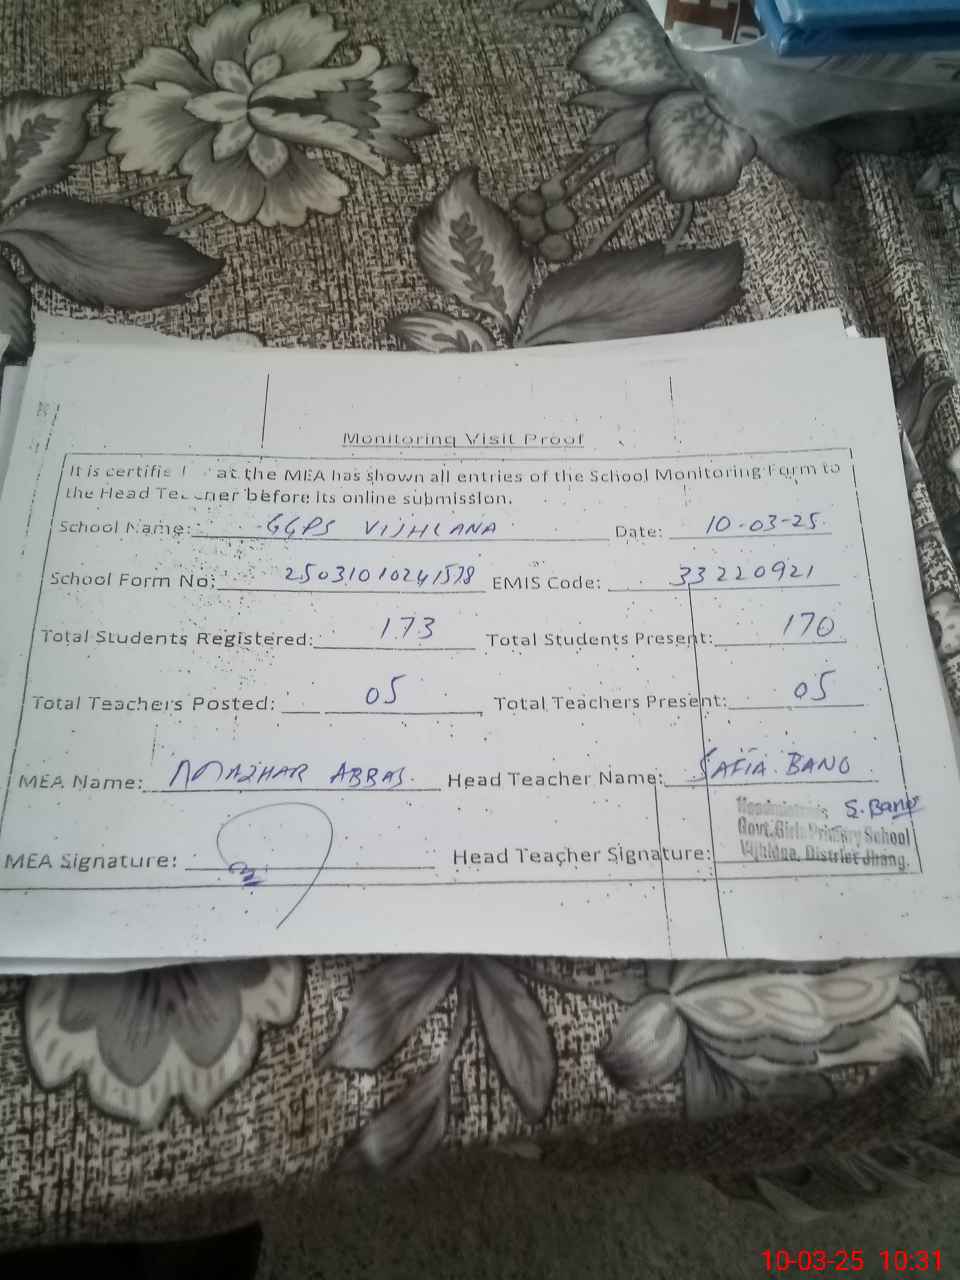 Monitoring Visit Proof
It is at the MEA has shown all entries of the School Monitoring Form to
the Head before its online submission.
School Name: GGPS VIJHLANA Date: 10-03-25
School Form No: EMIS Code: 33220921
Total Students Registered: 173 Total Students Present: 170
Total Teachers Posted: 05 Total Teachers Present: 05
MEA Name: MAZHAR ABBAS. Head Teacher Name: SAFIA BANO
S. Bano
Govt. Girls Primary School
District Jhang.
MEA Signature: Head Teacher Signature:
10-03-25 10:31